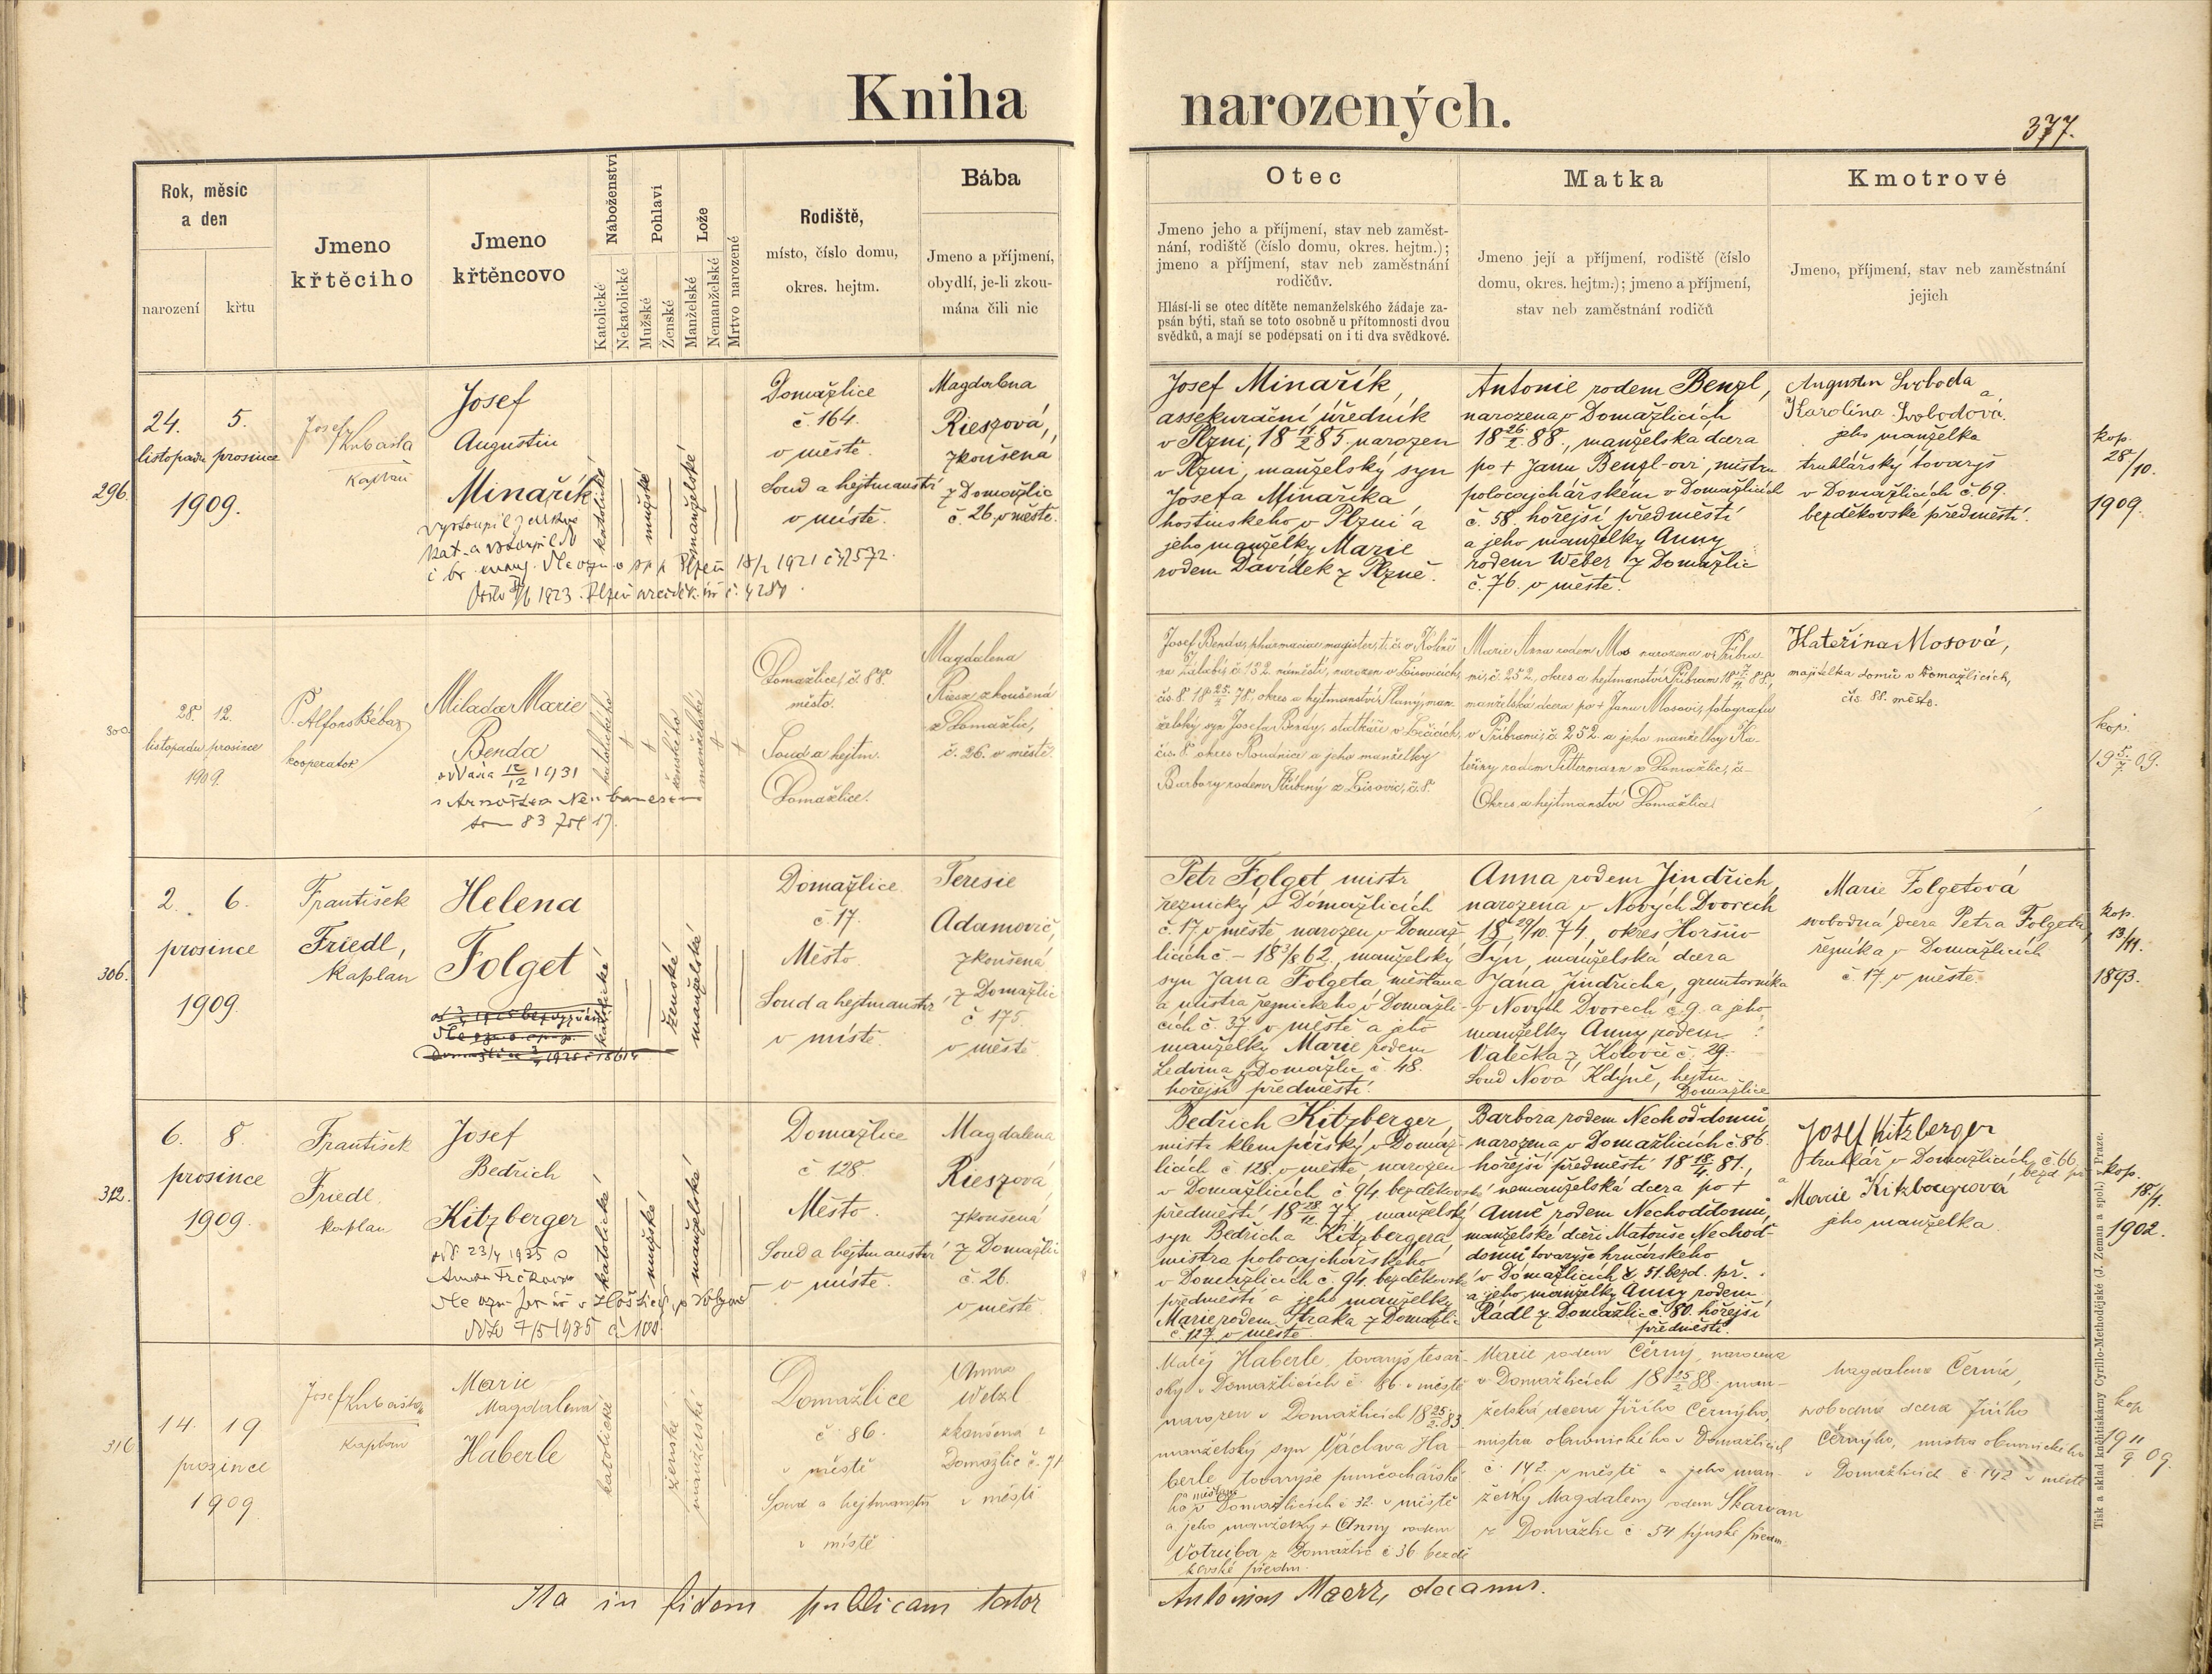 Kniha narozených.
377.
Rok, měsíc
a den
narození
křtu
Jmeno
křtěcího
Jmeno
křtěncovo
Náboženství
Katolické
Nekatolické
Pohlaví
Mužské
Ženské
Lože
Manželské
Nemanželské
Mrtvo narozené
Rodiště,
místo, číslo domu,
okres. hejtm.
Bába
Jmeno a příjmení,
obydlí, je-li zkou-
mána čili nic
Otec
Jmeno jeho a příjmení, stav neb zaměst-
nání, rodiště (číslo domu, okres. hejtm.);
jmeno a příjmení, stav neb zaměstnání
rodičův.
Hlásí-li se otec dítěte nemanželského žádaje za-
psán býti, staň se toto osobně u přítomnosti dvou
svědků, a mají se podepsati on i ti dva svědkové.
Matka
Jmeno její a příjmení, rodiště (číslo
domu, okres. hejtm.); jmeno a příjmení,
stav neb zaměstnání rodičů
Kmotrové
Jmeno, příjmení, stav neb zaměstnání
jejich
296.
24. 5.
listopadu prosince
1909.
Josef
kaplan
Josef
Augustin
Minařík
katolické
mužské
manželské
Domažlice
č. 164.
v městě.
Soud a hejtmanství
v místě.
Magdalena
Rieszová,
zkoušená
z Domažlic
č. 26. v městě.
Josef Minařík,
assekurační úředník
v Plzni, 18 11/2 85. narozen
v Plzni, manželský syn
Josefa Minaříka
hostinského v Plzni a
jeho manželky Marie
rodem Davídek z Plzně.
Antonie rodem Benzl,
narozena v Domažlicích
18 26/1. 88., manželská dcera
po + Janu Benzl-ovi, mistru
policajchářském v Domažlicích
č. 58. hořejší předměstí
a jeho manželky Anny
rodem Weber z Domažlic
č. 76. v městě.
Augustin Svoboda
a
Karolina Svobodová
jeho manželka
truhlářský tovaryš
v Domažlicích č. 69.
bezděkovské předměstí.
kop.
28/10.
1909.
28. 12.
listopadu prosince
1909.
P. Alfons
kooperator
Milada Marie
Benda
12/12 1931
katolického
ženského
manželské
Domažlice, č. 88.
město.
Soud a hejtm.
Domažlice.
Magdalena
Riesz zkoušená
z Domažlic,
č. 26. v městě.
Josef Benda, pharmaciae magister, t. č. v Kolíně
čís. 8. 18 25/2 78, okres a hejtmanství Slaný, man-
želský syn Josefa Bendy, statkáře v
čís. 8. okres Roudnice a jeho manželky
Barbory rodem
Marie Anna rodem Mos narozena v Příbra-
mi, č. 252, okres a hejtmanství Příbram
manželská dcera po + Janu Mosovi, fotografu
v Příbrami, č. 252. a jeho manželky Ka-
teřiny rodem Pittermann z Domažlic, č. –
Okres a hejtmanství Domažlice.
Kateřina Mosová,
majitelka domu v Domažlicích,
čís. 88. město.
kop.
306.
2. 6.
prosince
1909.
František
Friedl,
kaplan
Helena
Folget
katolické
ženské
manželské
Domažlice.
č. 17.
Město.
Soud a hejtmanství
v místě.
Teresie
Adamovič,
zkoušená
z Domažlic
č. 175.
v městě
Petr Folget mistr
řeznický v Domažlicích
č. 17 v městě narozen v Domaž-
licích č. – 18 3/8 62., manželský
syn Jana Folgeta, měšťana
a mistra řeznického v Domažli-
cích č. 37. v městě a jeho
manželky Marie rodem
Ledvina z Domažlic č. 48.
hořejší předměstí.
Anna rodem Jindřich,
narozena v Nových Dvorech
18 29/10. 74, okres Horšův
Týn, manželská dcera
Jana Jindřicha, gruntovníka
v Nových Dvorech č. 9. a jeho
manželky Anny rodem
Valečka z Kolovče č. 29.
Soud Nová Kdýně, hejtm.
Domažlice
Marie Folgetová
svobodná dcera Petra Folgeta,
řezníka v Domažlicích
č. 17. v městě.
kop.
13/11.
1893.
312.
6. 8.
prosince
1909.
František
Friedl.
kaplan
Josef
Bedřich
Kitzberger
katolické
mužské
manželské
Domažlice
č 128.
Město.
Soud a hejtmanství
v místě.
Magdalena
Rieszová
zkoušená
z Domažlic
č. 26.
v městě.
Bedřich Kitzberger,
mistr klempířský v Domaž-
licích č. 128. v městě, narozen
v Domažlicích č. 94. bezděkovské
předměstí 18 28/12. 77., manželský
syn Bedřicha Kitzbergera
mistra policajchářského
v Domažlicích č. 94. bezděkovské
předměstí a jeho manželky
Marie rodem Straka z Domažlic
č. 127. v městě
Barbora rodem Nechoďdomů,
narozena v Domažlicích č. 86.
hořejší předměstí 18 18/4. 81.,
nemanželská dcera po +
Anně rodem Nechoďdomů,
manželské dceři Matouše Nechoď-
domů tovaryše hrnčířského
v Domažlicích č. 51. bezd. př.
a jeho manželky Anny rodem
Rádl z Domažlic č. 80. hořejší
předměstí.
Josef Kitzberger
truhlář v Domažlicích č. 66
a
Marie Kitzbergrová
jeho manželka.
kop.
18/1.
1902.
316
14. 19
prosince
1909
Josef
kaplan
Marie
Magdalena
Haberle
katolické
ženské
manželské
Domažlice
č 86.
v městě
Soud a hejtmanství
v místě
Anna
Welzl
zkoušená z
Domažlic č. 71
v městě
Matěj Haberle, tovaryš tesař-
ský v Domažlicích č. 86. v městě
narozen v Domažlicích 18 25/2. 83.
manželský syn Václava Ha-
berle tovaryše punčochářské-
ho v Domažlicích č. 32. v městě
a jeho manželky + Anny rodem
Votruba z Domažlic č 36 bezdě-
kovské předm.
Marie rodem Černý, narozena
v Domažlicích 18 15/2 88. man-
želská dcera Jiřího Černýho,
mistra obuvnického v Domažlicích
č. 142. v městě a jeho man-
želky Magdaleny rodem Skarvan
z Domažlic č. 54 týnské předm.
Magdalena Černá,
svobodná dcera Jiřího
Černýho, mistra obuvnického
v Domažlicích č. 142 v městě
kop
19 11/9 09.
Ita in fidem publicam testor
Antonius Maerz, decanus.
Tisk a sklad knihtiskárny Cyrillo-Methodějské (J. Zeman a spol.) v Praze.